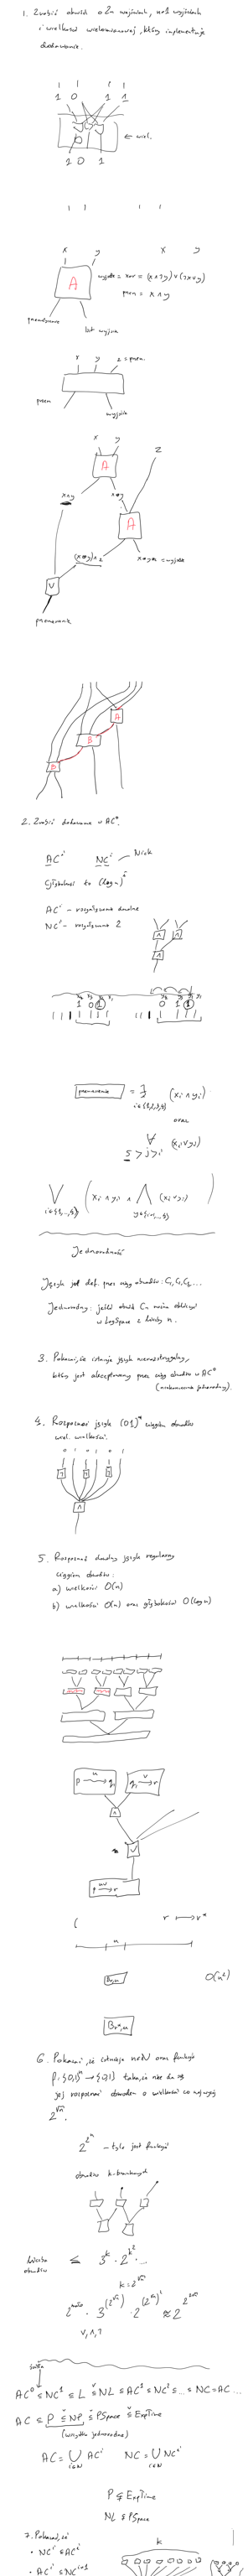 1. Zrobić obwód o 2n wejściach, n+1 wyjściach
i wielkości wielomianowej, który implementuje
dodawanie.
1 0 1 1
← wiel.
1 0 1
x y
x y
A
wyjście = xor = (x∧¬y)∨(¬x∧y)
przen = x∧y
przeniesienie
bit wyjścia
x y z = przen.
przen
wyjście
x y
z
A
x∧y
x⊕y
A
(x⊕y)∧z
x⊕y⊕z = wyjście
∨
przeniesienie
A
B
B
2. Zrobić dodawanie w AC⁰.
ACⁱ NCⁱ — Nick
Głębokość to (log n)ⁱ
ACⁱ – rozgałęzienie dowolne
NCⁱ – rozgałęzienie 2
∧ ∧
∧
przeniesienie = ∃ (xᵢ∧yᵢ)
i∈{1,2,3,4}
oraz
∀ (xⱼ∨yⱼ)
5>j>i
Jednorodność
Język jest def. przez ciąg obwodów: C₁, C₂, ...
Jednorodny: jeśli obwód Cn można obliczyć
w LogSpace z liczby n.
3. Pokazać, że istnieje język nierozstrzygalny,
który jest akceptowany przez ciąg obwodów w AC⁰
(niekoniecznie jednorodny).
4. Rozpoznać język (01)* ciągiem obwodów
wiel. wielkości.
0 1 0 1 0 1
¬ ¬ ¬
∧
5. Rozpoznać dowolny język regularny
ciągiem obwodów:
a) wielkości O(n)
b) wielkości O(n) oraz głębokości O(log n)
p →ᵘ q₁ q₁ →ᵛ r
∧
∨
p →ᵘᵛ r
r ⟼ r*
n
Br,n
O(n²)
Br*,n
6. Pokazać, że istnieje n∈ℕ oraz funkcja
f: {0,1}ⁿ → {0,1} taka, że nie da się
jej rozpoznać obwodem o wielkości co najwyżej
2^√n.
2^2ⁿ – tyle jest funkcji
obwodów k-bramkowych
liczba
obwodów
≤ 3ᵏ · 2^k² ...
k = 2^√n
∨, ∧, ¬
AC⁰ ⊊ NC¹ ⊆ L ⊆ NL ⊆ AC¹ ⊆ NC² ⊆ ... ⊆ NC = AC ...
AC ⊆ P ⊆ NP ⊆ PSpace ⊆ ExpTime
(wszystko jednorodne)
AC = ⋃ ACⁱ NC = ⋃ NCⁱ
i∈ℕ i∈ℕ
P ⊊ ExpTime
NL ⊊ PSpace
7. Pokazać, że
k
• NCⁱ ⊆ ACⁱ
• ACⁱ ⊆ NCⁱ⁺¹